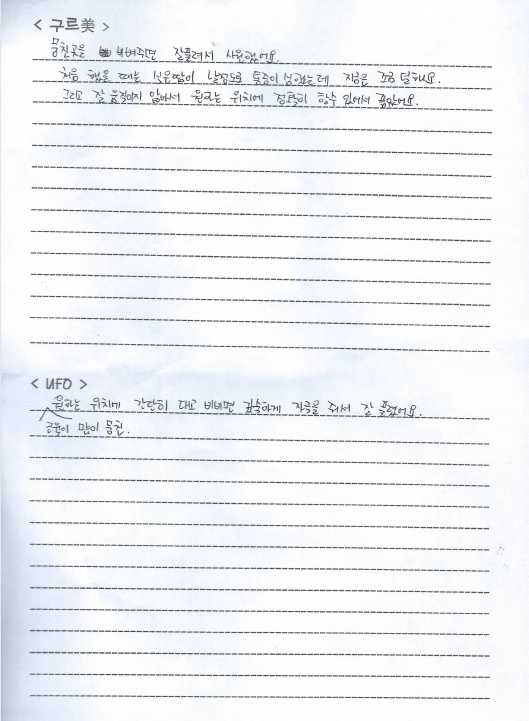 < 구르美 >
뭉친곳을 비벼주면 잘풀려서 사용했어요.
처음 했을 때는 식은땀이 날정도로 통증이 심했는데 지금은 조금 덜해요.
그리고 잘 움직이지 않아서 원하는 위치에 정확히 할수 있어서 좋았어요.
< UFO >
원하는 위치에 간단히 대고 비비면 깊숙하게 자극을 줘서 잘 풀렸어요.
근육이 많이 뭉친.